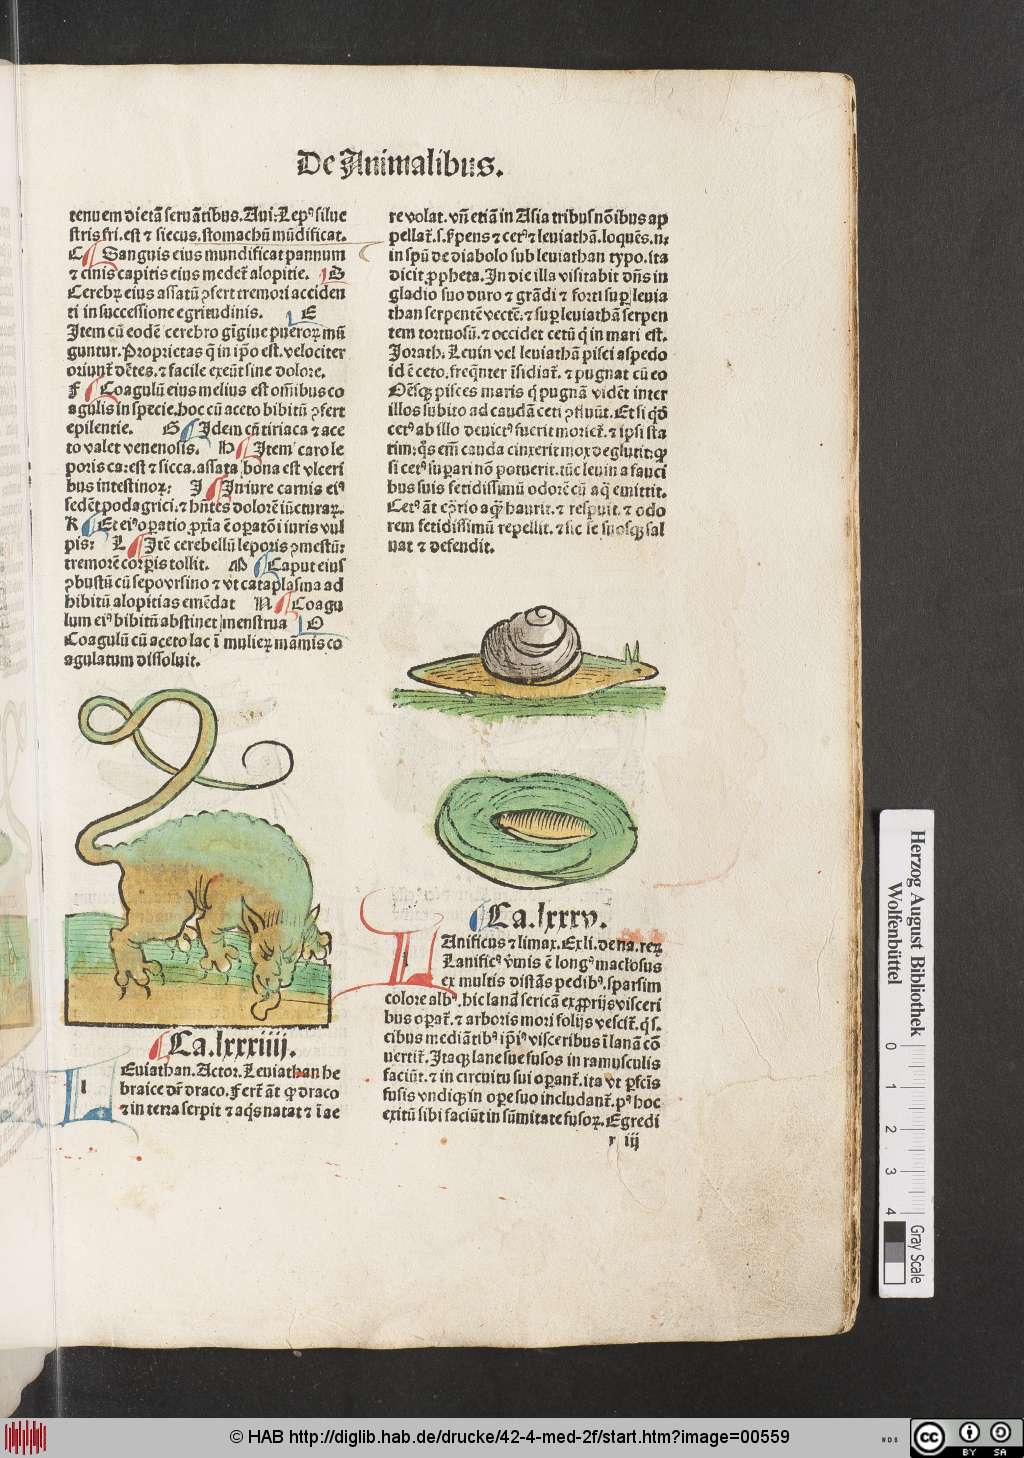 De Animalibus.
tenuem dietã seruãtibus. Aui. Lepꝰ silue
stris fri. est ⁊ siccus. stomachũ mũdificat.
C Sanguis eius mundificat pannum
⁊ cinis capitis eius medet̃ alopitie. D
Cerebꝝ eius assatũ ꝯfert tremori acciden
ti in successione egritudinis. E
Item cũ eodẽ cerebro gĩgiue pueroꝝ mũ
guntur. Proprietas q̃ in ip̃o est. velociter
oriunt̃ dẽtes. ⁊ facile exeũt sine dolore.
F Coagulũ eius melius est om̃ibus co
agulis in specie. hoc cũ aceto bibitũ ꝯfert
epilentie. G Idem cũ tiriaca ⁊ ace
to valet venenosis. H Item caro le
poris ca. est ⁊ sicca. assata bona est vlceri
bus intestinoꝝ: I In iure carnis eiꝰ
sedẽt podagrici. ⁊ hñtes dolorẽ iũcturaꝝ.
K Et eiꝰ oꝑatio ꝓxĩa ẽ oꝑatõi iuris vul
pis: L Itẽ cerebellũ leporis ꝯmestũ:
tremorẽ corꝑis tollit. M Caput eius
ꝯbustũ cũ sepo vrsino ⁊ vt cataplasma ad
hibitũ alopitias emẽdat N Coagu
lum eiꝰ bibitũ abstinet menstrua O
Coagulũ cũ aceto lac ĩ mulieꝝ mãmis co
agulatum dissoluit.
Ca. lxxxiiij.
l Euiathan. Actor. Leuiathan he
braice dr̃ draco. Fert̃ ãt ꝙ draco
⁊ in terra serpit ⁊ aq̃s natat ⁊ ĩ ae
re volat. vñ etiã in Asia tribus nõibus ap
pellat̃. s. s̃pens ⁊ cetꝰ ⁊ leuiathã. loquẽs. n:
in spũ de diabolo sub leuiathan typo. ita
dicit ꝓpheta. In die illa visitabit dñs in
gladio suo duro ⁊ grãdi ⁊ forti suꝑ leuia
than serpentẽ vectẽ. ⁊ suꝑ leuiathã serpen
tem tortuosũ. ⁊ occidet cetũ q̃ in mari est.
Jorath. Leuin vel leuiathã pisci aspedo
id ẽ ceto. freq̃nter ĩsidiat̃. ⁊ pugnat cũ eo
Oẽsqꝫ pisces maris q̃ pugnã vidẽt inter
illos subito ad caudã ceti ꝯfluũt. Et si qñ
cetꝰ ab illo deuictꝰ fuerit moriet̃. ⁊ ip̃i sta
tim: q̃s em̃ cauda cinxerit mox deglutit: ꝙ
si cetꝰ suꝑari nõ potuerit. tũc leuin a fauci
bus suis fetidissimũ odorẽ cũ aq̃ emittit.
Cetꝰ ãt cõtrio aqꝫ haurit. ⁊ respuit. ⁊ odo
rem fetidissimũ repellit. ⁊ sic se suosqꝫ sal
uat ⁊ defendit.
Ca. lxxxv.
l Anificus ⁊ limax. Ex li. de na. reꝝ
Lanificꝰ v̾mis ẽ longꝰ
ex multis distãs pedibꝰ. sparsim
colore albꝰ. hic lanã sericã ex ꝓprijs visceri
bus oꝑat̃. ⁊ arboris mori folijs vescit̃. q̃ s.
cibus mediãtibꝰ ip̃iꝰ visceribus ĩ lanã cõ
uertit̃. Itaqꝫ lane sue fusos in ramusculis
faciũt. ⁊ in circuitu sui oꝑant̃. ita vt ꝑfc̃is
fusis vndiqꝫ in oꝑe suo includant̃. pꝰ hoc
exitũ sibi faciũt in sũmitate fusoꝝ. Egredi
x iij
Herzog August Bibliothek
Wolfenbüttel
0 1 2 3 4
Gray Scale
© HAB http://diglib.hab.de/drucke/42-4-med-2f/start.htm?image=00559
WDB
cc BY SA